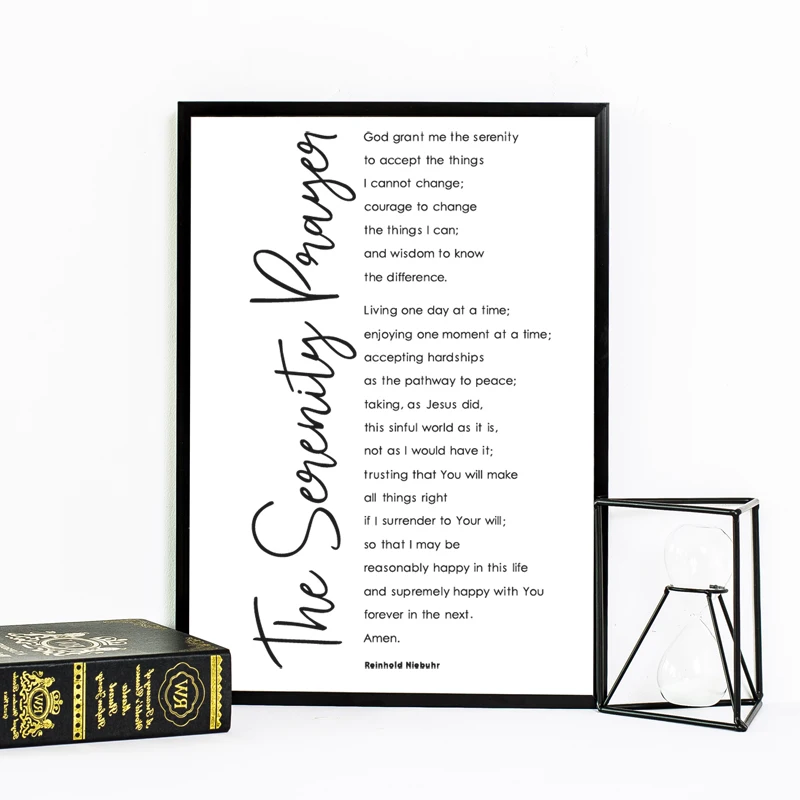 The Serenity Prayer
God grant me the serenity
to accept the things
I cannot change;
courage to change
the things I can;
and wisdom to know
the difference.
Living one day at a time;
enjoying one moment at a time;
accepting hardships
as the pathway to peace;
taking, as Jesus did,
this sinful world as it is,
not as I would have it;
trusting that You will make
all things right
if I surrender to Your will;
so that I may be
reasonably happy in this life
and supremely happy with You
forever in the next.
Amen.
Reinhold Niebuhr